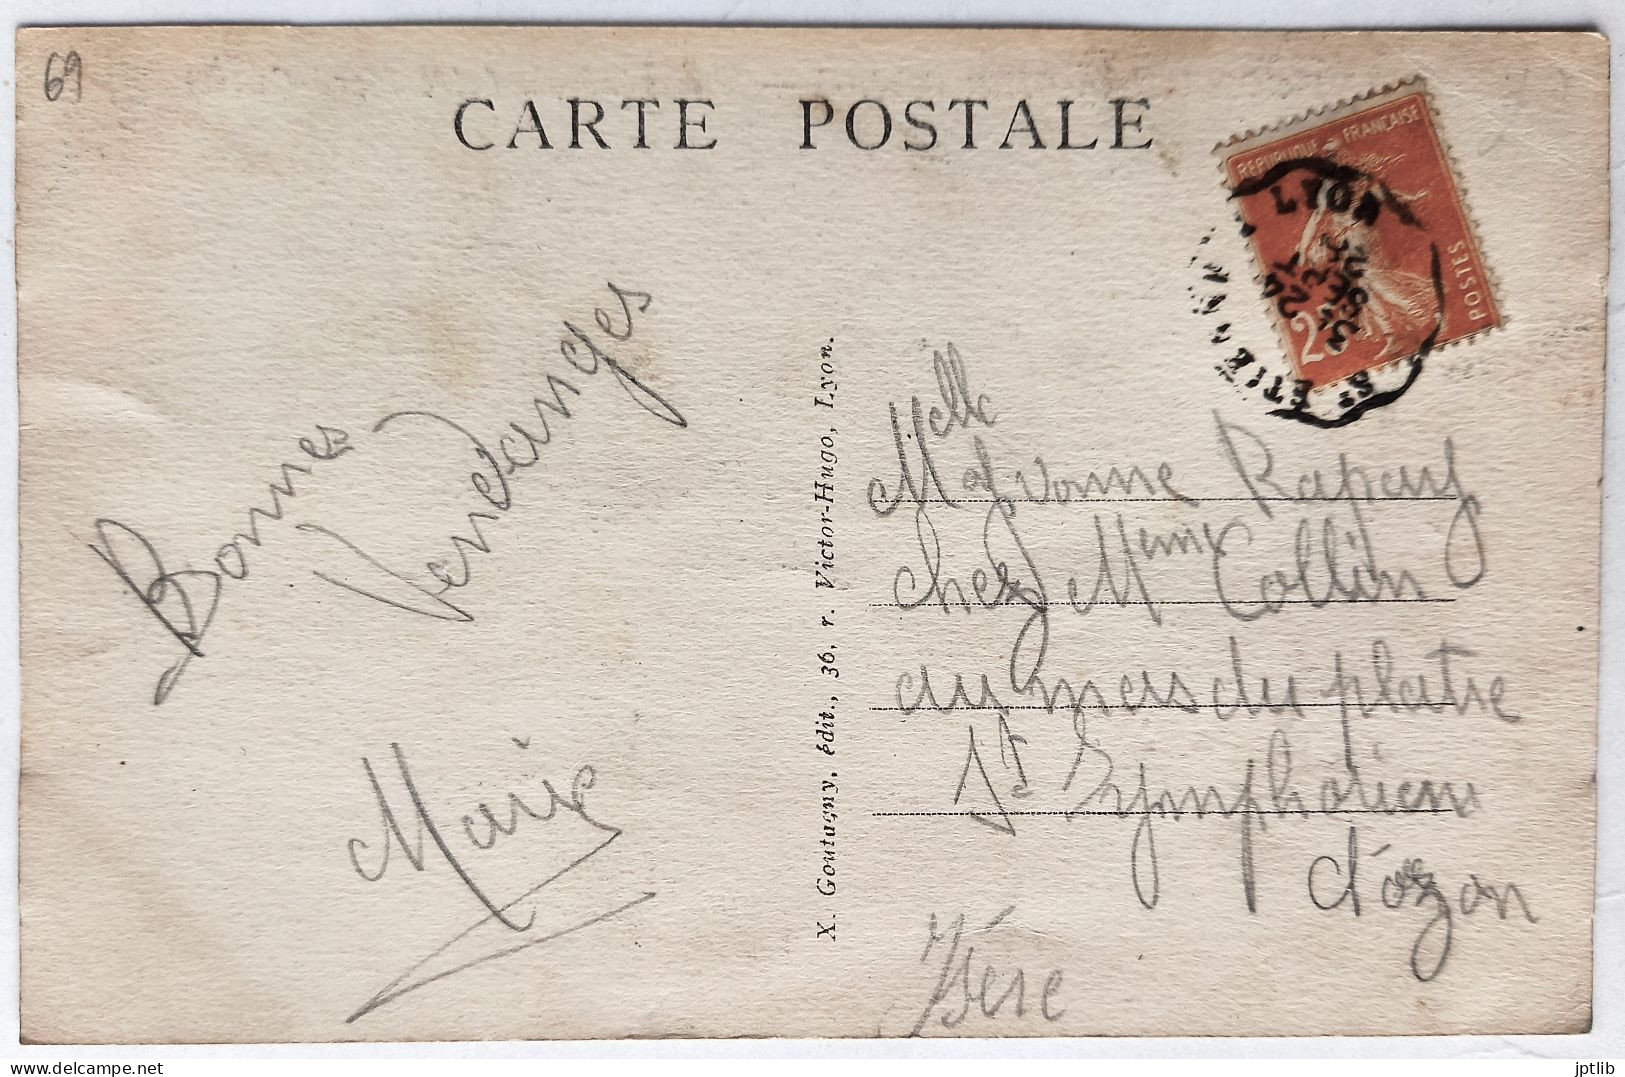 69
CARTE POSTALE
REPUBLIQUE FRANÇAISE
POSTES
LYON
ST ETIENNE
Bonnes
Vendanges
Marie
X. Goutagny, édit., 36, r. Victor-Hugo, Lyon.
Melle Yvonne
chez Mme Collin
au mas du platre
St Symphorien
d'ozon
Isère
delcampe.net
jptlib